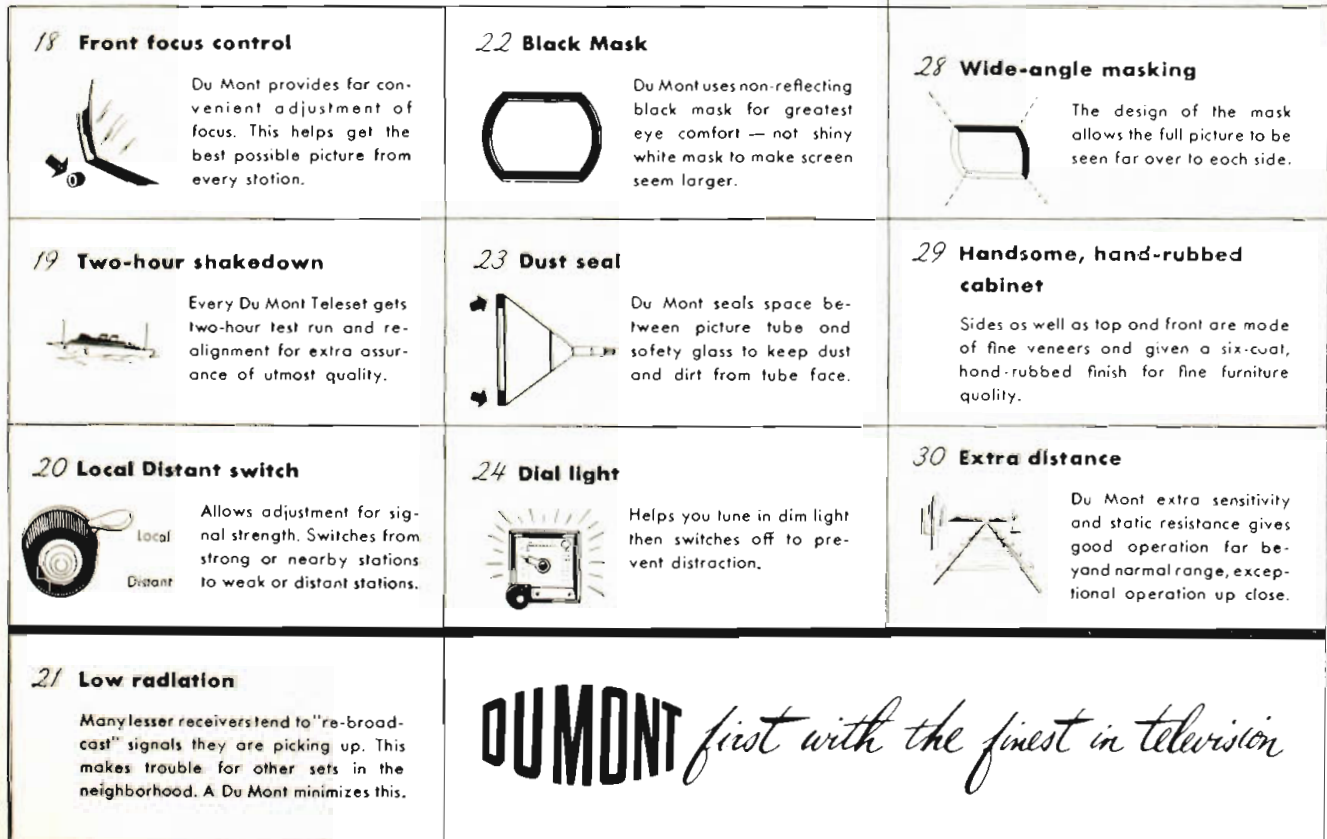 18 Front focus control
Du Mont provides for con-
venient adjustment of
focus. This helps get the
best possible picture from
every station.
19 Two-hour shakedown
Every Du Mont Teleset gets
two-hour test run and re-
alignment for extra assur-
ance of utmost quality.
20 Local Distant switch
Local
Distant
Allows adjustment for sig-
nal strength. Switches from
strong or nearby stations
to weak or distant stations.
21 Low radiation
Many lesser receivers tend to "re-broad-
cast" signals they are picking up. This
makes trouble for other sets in the
neighborhood. A Du Mont minimizes this.
22 Black Mask
Du Mont uses non-reflecting
black mask for greatest
eye comfort — not shiny
white mask to make screen
seem larger.
23 Dust seal
Du Mont seals space be-
tween picture tube and
safety glass to keep dust
and dirt from tube face.
24 Dial light
Helps you tune in dim light
then switches off to pre-
vent distraction.
28 Wide-angle masking
The design of the mask
allows the full picture to be
seen far over to each side.
29 Handsome, hand-rubbed
cabinet
Sides as well as top and front are made
of fine veneers and given a six-coat,
hand-rubbed finish for fine furniture
quality.
30 Extra distance
Du Mont extra sensitivity
and static resistance gives
good operation far be-
yond normal range, excep-
tional operation up close.
DUMONT first with the finest in television